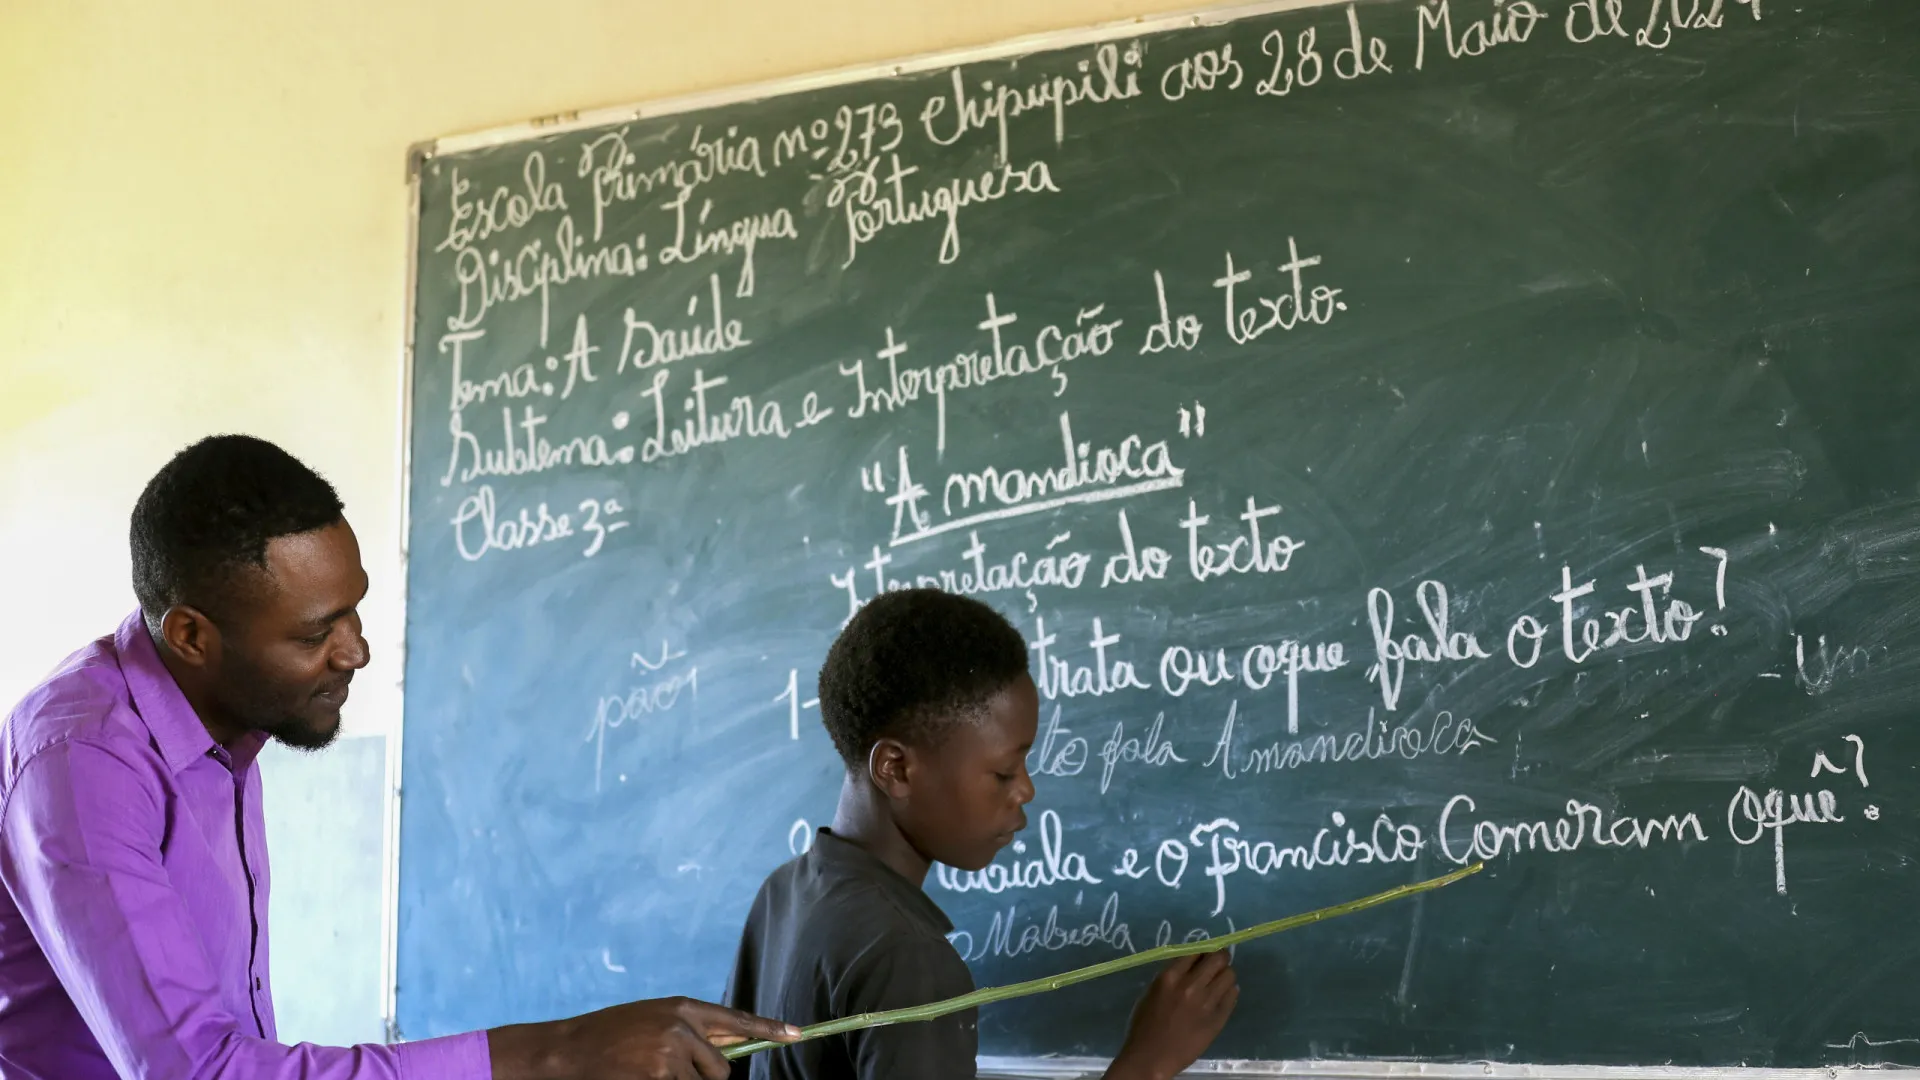 Escola Primária nº 273 Chipupili aos 28 de Maio de 2024
Disciplina: Língua Portuguesa
Tema: A Saúde
Subtema: Leitura e Interpretação do texto.
Classe 3ª
"A mandioca"
Interpretação do texto
1- trata ou oque fala o texto?
fala A mandioca
e o Francisco Comeram oquê?
o Mabiala e o